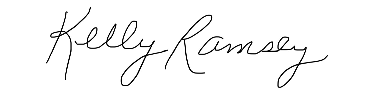 Kelly Ramsey